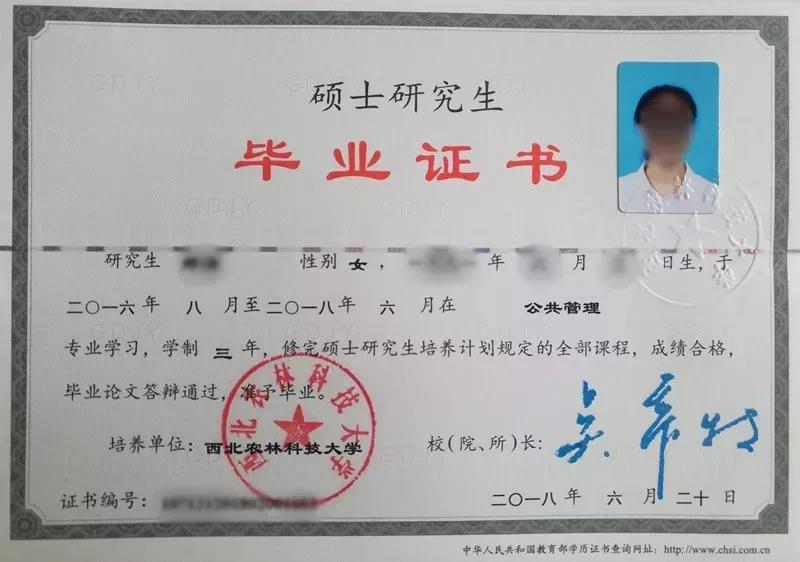 硕士研究生
毕业证书
研究生 性别 女， 年 月 日生，于
二〇一六年 八 月至二〇一八年 六 月在 公共管理
专业学习，学制 三 年，修完硕士研究生培养计划规定的全部课程，成绩合格，
毕业论文答辩通过，准予毕业。
西北农林科技大学
培养单位：西北农林科技大学 校（院、所）长：吴普特
证书编号： 二〇一八年 六 月 二十 日
中华人民共和国教育部学历证书查询网址：http://www.chsi.com.cn